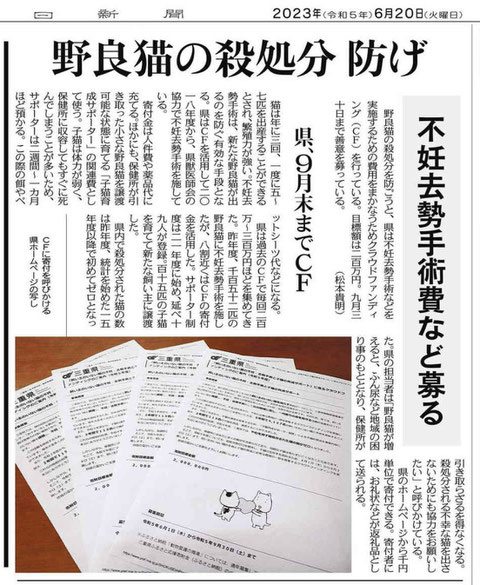 日 新 聞 2023年(令和5年)6月20日(火曜日)
野良猫の殺処分 防げ
不妊去勢手術費など募る
県、9月末までCF
野良猫の殺処分を防ごうと、県は不妊去勢手術などを
実施するための費用をまかなうためクラウドファンディ
ング(CF)を行っている。目標額は二百万円。九月三
十日まで善意を募っている。 (松本貴明)
猫は年に三回、一度に五~
七匹を出産することができる
とされ、繁殖力が強い。不妊去
勢手術は、新たな野良猫が出
るのを防ぐ有効な手段とな
る。県はCFを活用して二〇
一八年度から、県獣医師会の
協力で不妊去勢手術を施して
いる。
寄付金は人件費や薬品代に
充てる。ほかにも、保健所が引
き取った小さな野良猫を譲渡
可能な状態に育てる「子猫育
成サポーター」の関連費とし
て使う。子猫は体力が弱く、
保健所に収容してもすぐに死
んでしまうことが多いため、
サポーターは二週間~一カ月
ほど預かる。この際の餌やペ
ットシーツ代などになる。
県は過去のCFで毎回二百
万~三百万円ほどを集めてき
た。昨年度、千百五十二匹の
野良猫に不妊去勢手術を施し
たが、八割近くはCFの寄付
金を活用した。サポーター制
度は二一年度に始め、延べ十
九人が登録。百十五匹の子猫
を育てて新たな飼い主に譲渡
した。
県内で殺処分された猫の数
は昨年度、統計を始めた一五
年度以降で初めてゼロとなっ
た。県の担当者は「野良猫が増
えると、ふん尿など地域の困
り事のもととなり、保健所が
引き取らざるを得なくなる。
殺処分される不幸な猫を出さ
ないためにも協力をお願いし
たい」と呼びかけている。
県のホームページから千円
単位で寄付できる。寄付者に
は、お礼状などが返礼品とし
て送られる。
CFに寄付を呼びかける
県ホームページの写し
三重県
三重県